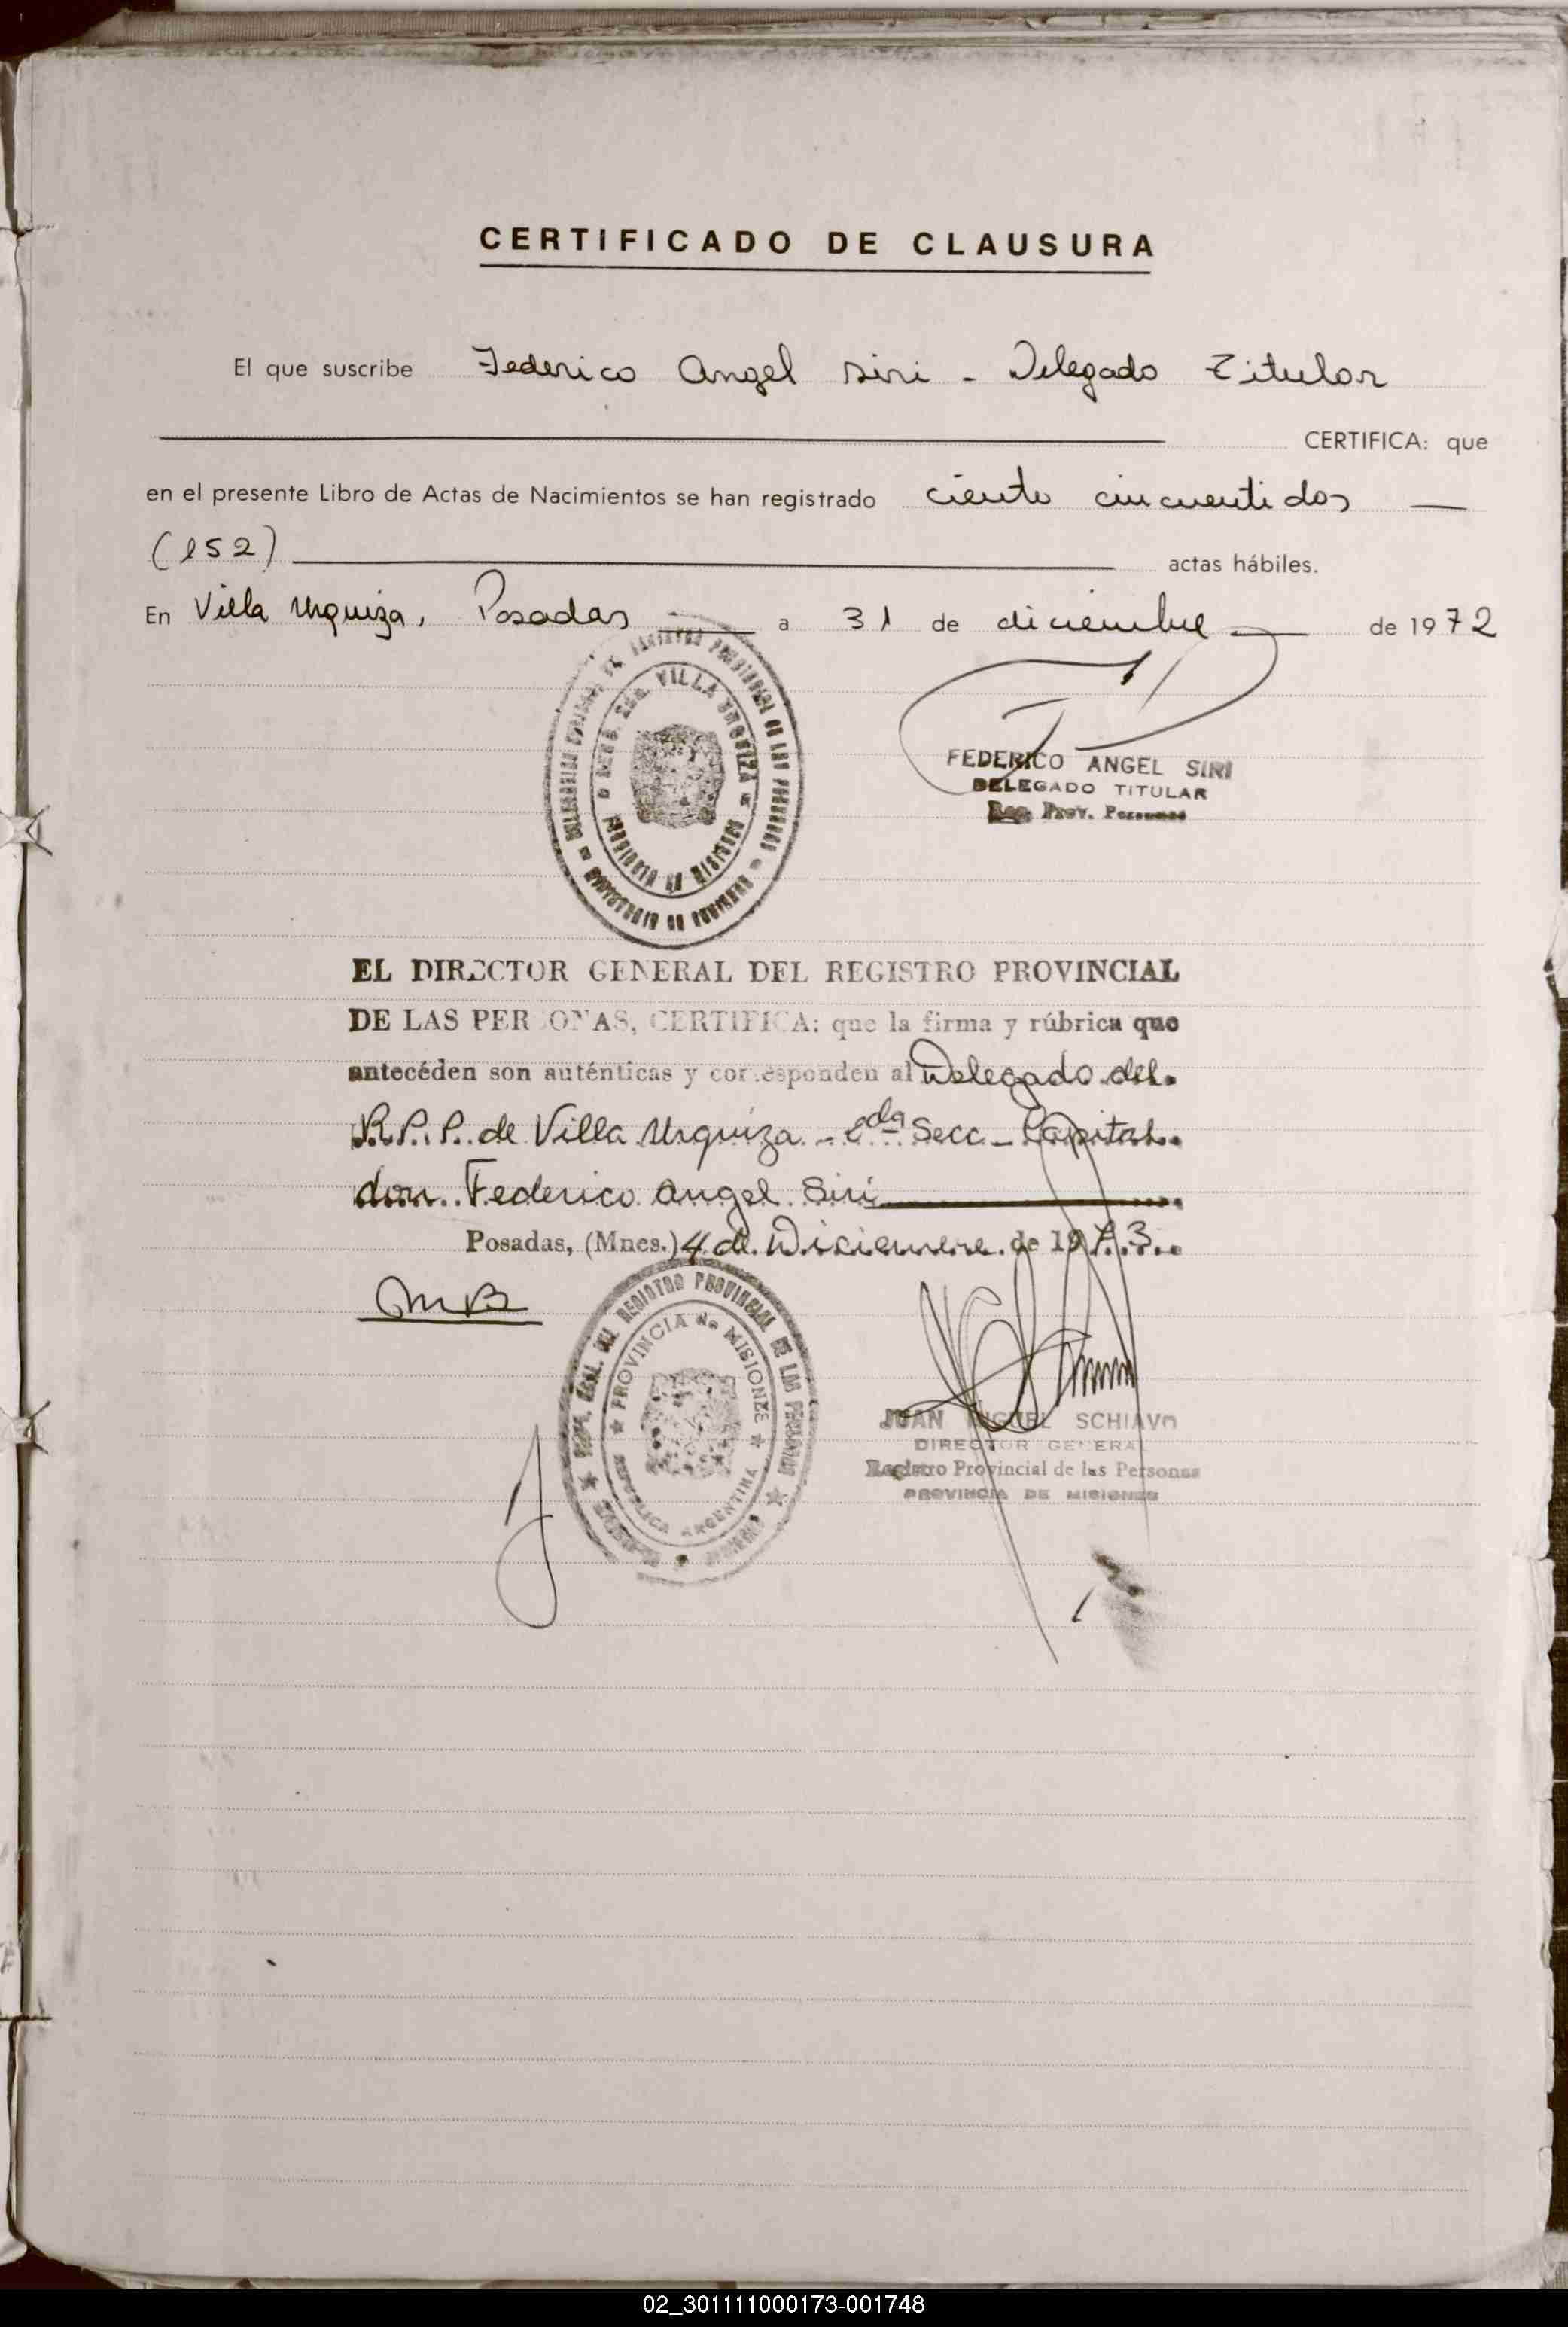 CERTIFICADO DE CLAUSURA
El que suscribe Federico Angel Siri - Delegado Titular
CERTIFICA: que
en el presente Libro de Actas de Nacimientos se han registrado ciento cincuentidos —
(152) actas hábiles.
En Villa Urquiza, Posadas — a 31 de diciembre — de 1972
VILLA URQUIZA
PROVINCIA DE MISIONES
FEDERICO ANGEL SIRI
DELEGADO TITULAR
Reg. Prov. Personas
EL DIRECTOR GENERAL DEL REGISTRO PROVINCIAL
DE LAS PERSONAS, CERTIFICA: que la firma y rúbrica que
antecéden son auténticas y corresponden al Delegado del
R.P.P. de Villa Urquiza - 2da Secc - Capital
don Federico Angel Siri
Posadas, (Mnes.) 4 de Diciembre de 1973
DEL REGISTRO PROVINCIAL DE LAS PERSONAS
PROVINCIA de MISIONES
REPUBLICA ARGENTINA
JUAN MIGUEL SCHIAVO
DIRECTOR GENERAL
Registro Provincial de las Personas
PROVINCIA DE MISIONES
02_301111000173-001748